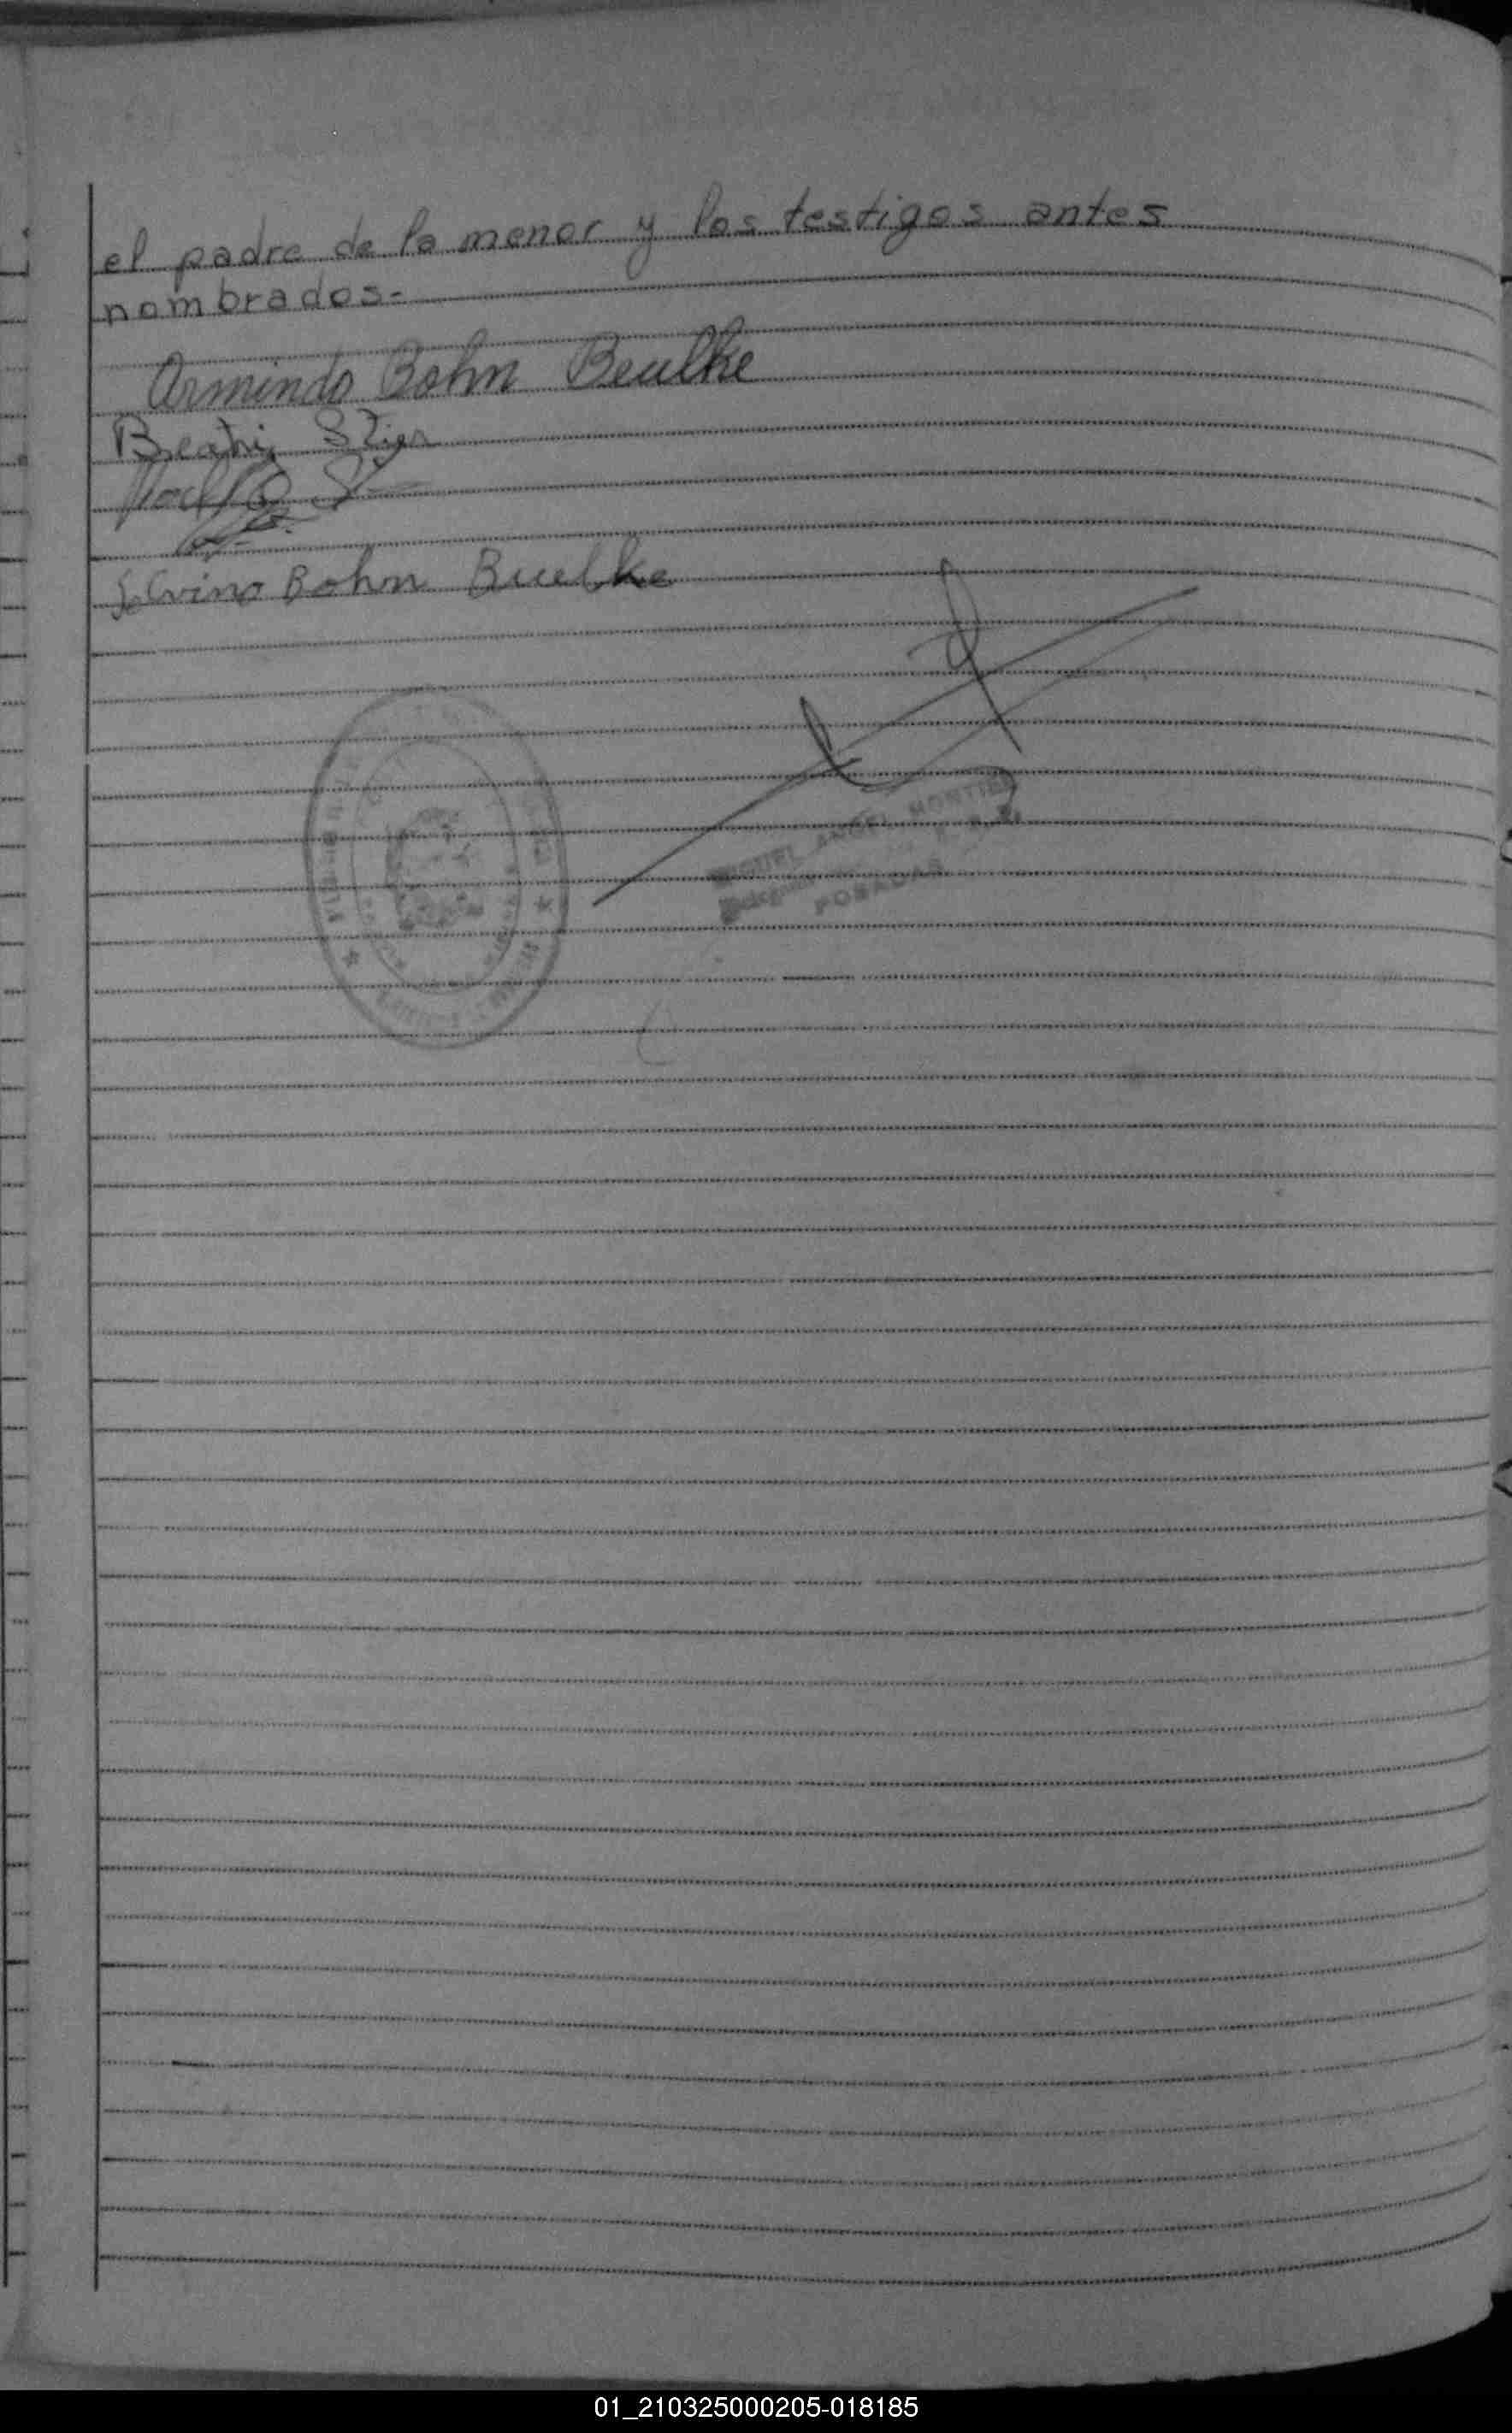 el padre de la menor y los testigos antes
nombrados.-
Armindo Bohn Beulke
Beatriz Stier
Selvino Bohn Buelke
MIGUEL ANGEL MONTIEL
POSADAS
01_210325000205-018185